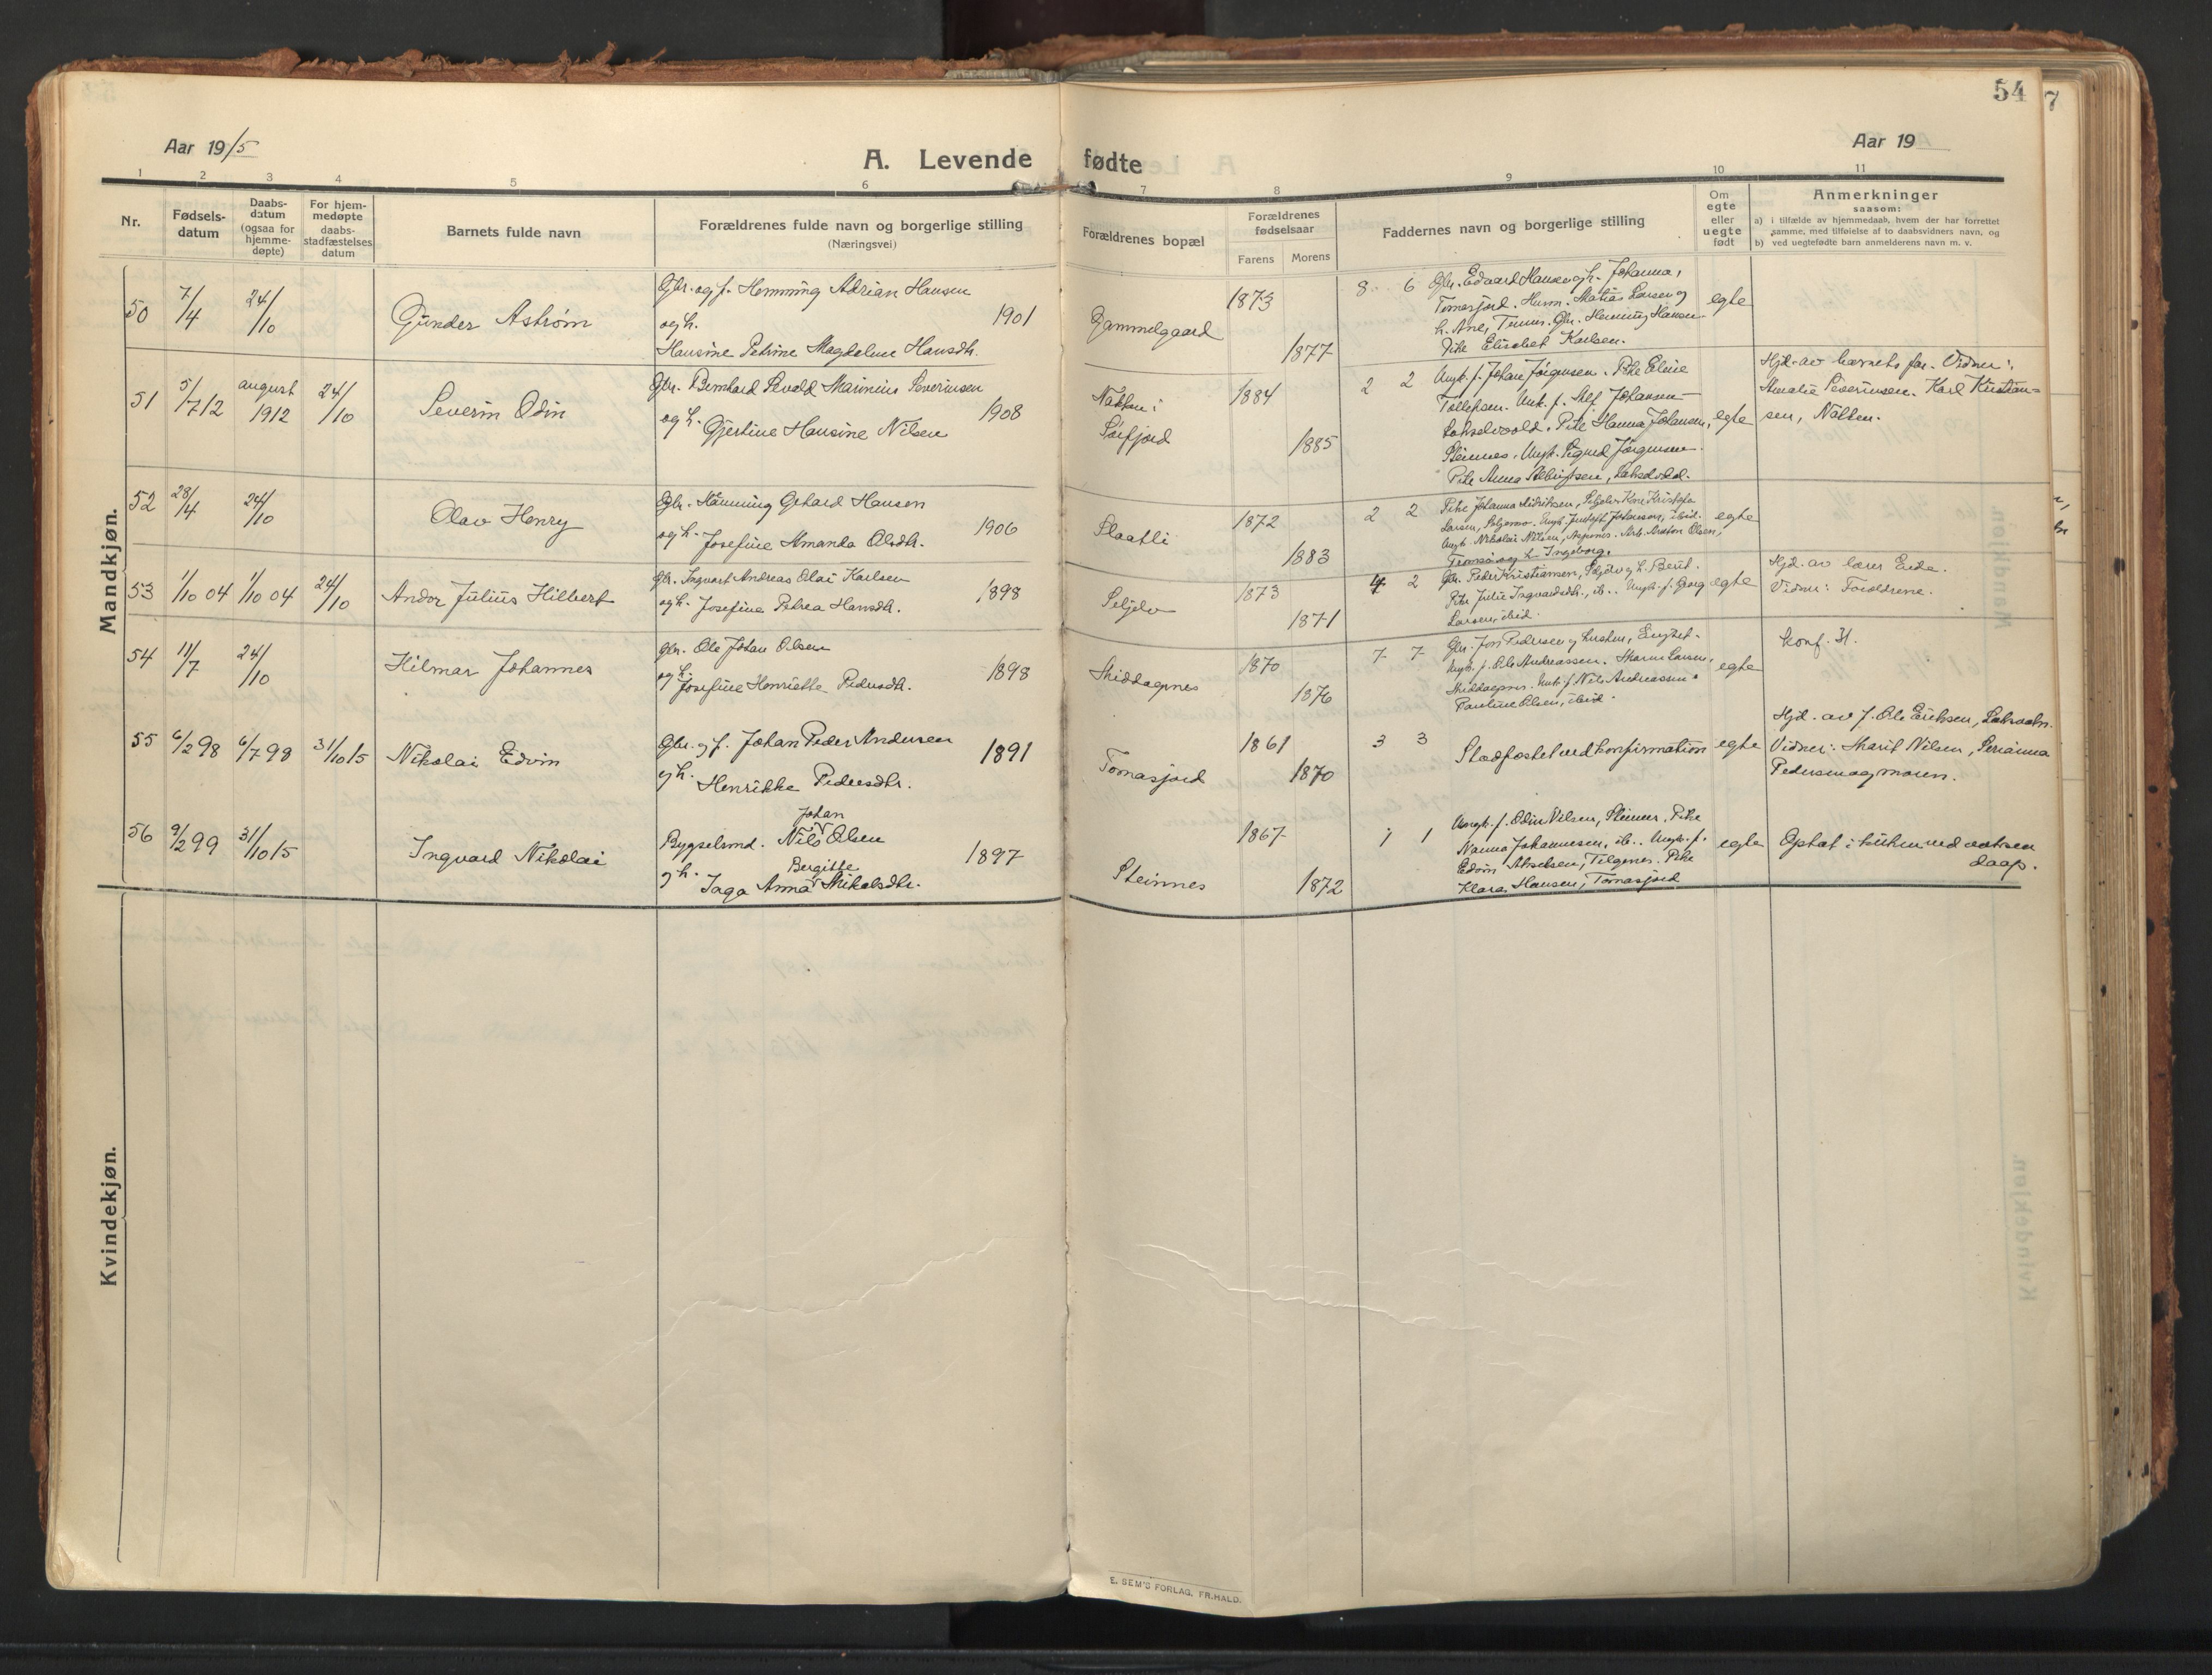 54
7
Aar 1915
A. Levende fødte
Aar 19
1 2 3 4 5 6 7 8 9 10 11
Nr.
Fødsels-
datum
Daabs-
datum
(ogsaa for
hjemme-
døpte)
For hjem-
medøpte
daabs-
stadfæstelses
datum
Barnets fulde navn
Forældrenes fulde navn og borgerlige stilling
(Næringsvei)
Forældrenes bopæl
Forældrenes
fødselsaar
Farens Morens
Faddernes navn og borgerlige stilling
Om
egte
eller
uegte
født
Anmerkninger
saasom:
a) i tilfælde av hjemmedaab, hvem der har forrettet
samme, med tilføielse af to daabsvidners navn, og
b) ved uegtefødte barn anmelderens navn m. v.
Mandkjøn.
50 7/4 24/10 Gunder Astrøm
Gbr. og f. Hemming Adrian Hansen
og h. 1901
Hansine Petrine Magdalene Hansdtr.
Gammelgaard 1873 1877 8 6
Gbr. Edvard Hansen og h. Johanna,
Tomasjord. Husm. Matias Larsen og
h. Ane, Gbr. Henning Hansen.
Pike Elisabet Karlsen.
egte
51 5/7 12 august 1912 24/10 Severin Odin
Gbr. Bernhard Sevald Marinius Severinsen
og h. Gjertine Hansine Nilsen 1908
Nakken i
Sørfjord
1884 1885 2 2
Ungk. f. Johan Jørgensen. Pike Eline
Tollefsen. Unk. f. Alf Johansen
Pike Hanna Johansen,
Steinnes. Ungk. Sigurd Jørgensen.
Pike Anna
egte
Hjd. av barnets far. Vidner:
Amalie Severinsen. Karl Kristian-
sen, Nakken.
52 28/4 24/10 Olav Henry
Gbr. Hamming Gehard Hansen
og h. Josefine Amanda Olsdtr. 1906
Slaatli 1872 1883 2 2
Pike Johanna Kone Kristofa
Larsen, Ungk. Johansen, ibid.
Ungk. Nikolai Nilsen, Arb. Anton Olsen,
Tromsø og h. Ingeborg.
egte
53 1/10 04 1/10 04 24/10 Andor Julius Hilbert
Gbr. Ingvart Andreas Olai Karlsen
og h. Josefine Petrea Hansdtr. 1898
Seljelv 1873 1871 4 2
Gbr. Peder Kristiansen, Seljelv og h. Berit.
Pike Julie Ingvardsdtr., ib.. Ungk. f. Georg
Larsen, ibid.
egte
Hjd. av lærer Eide.
Vidner: Forældrene.
54 11/7 24/10 Hilmar Johannes
Gbr. Ole Johan Olsen
og h. Josefine Henriette Pedersdtr. 1898
Middagsnes 1870 1876 7 7
Gbr. Jon Pedersen og hustru,
Ungk. f. Ole Andreassen. Maren Larsen,
Middagsnes. Unk. f. Nils Andreassen.
Pauline Olsen, ibid.
egte
Konf. H.
55 6/2 98 6/7 98 31/10 15 Nikolai Edvin
Gbr. og f. Johan Peder Andersen
og h. Henrikke Pedersdtr. 1891
Tomasjord 1861 1870 3 3
Stadfæstet ved konfirmation
egte
Hjd. av f. Ole Eriksen, Laksvatn.
Vidner: Marit Nilsen, Serianna
Pedersen og moren.
56 9/2 99 31/10 15 Ingvard Nikolai
Johan
Bygselmd. Nils Olsen
Bergitte
og h. Inga Anna Mikalsdtr. 1897
Steinnes 1867 1872 1 1
Ungk. f. Odin Nilsen, Steinnes. Pike
Nanna Johannesen, ib.. Ungk. f.
Edvin Akselsen, Tilgenes. Pike
Klara Hansen, Tomasjord
egte
Optat i kirken ved
daap.
Kvindekjøn.
E. SEM'S FORLAG, FR.HALD.